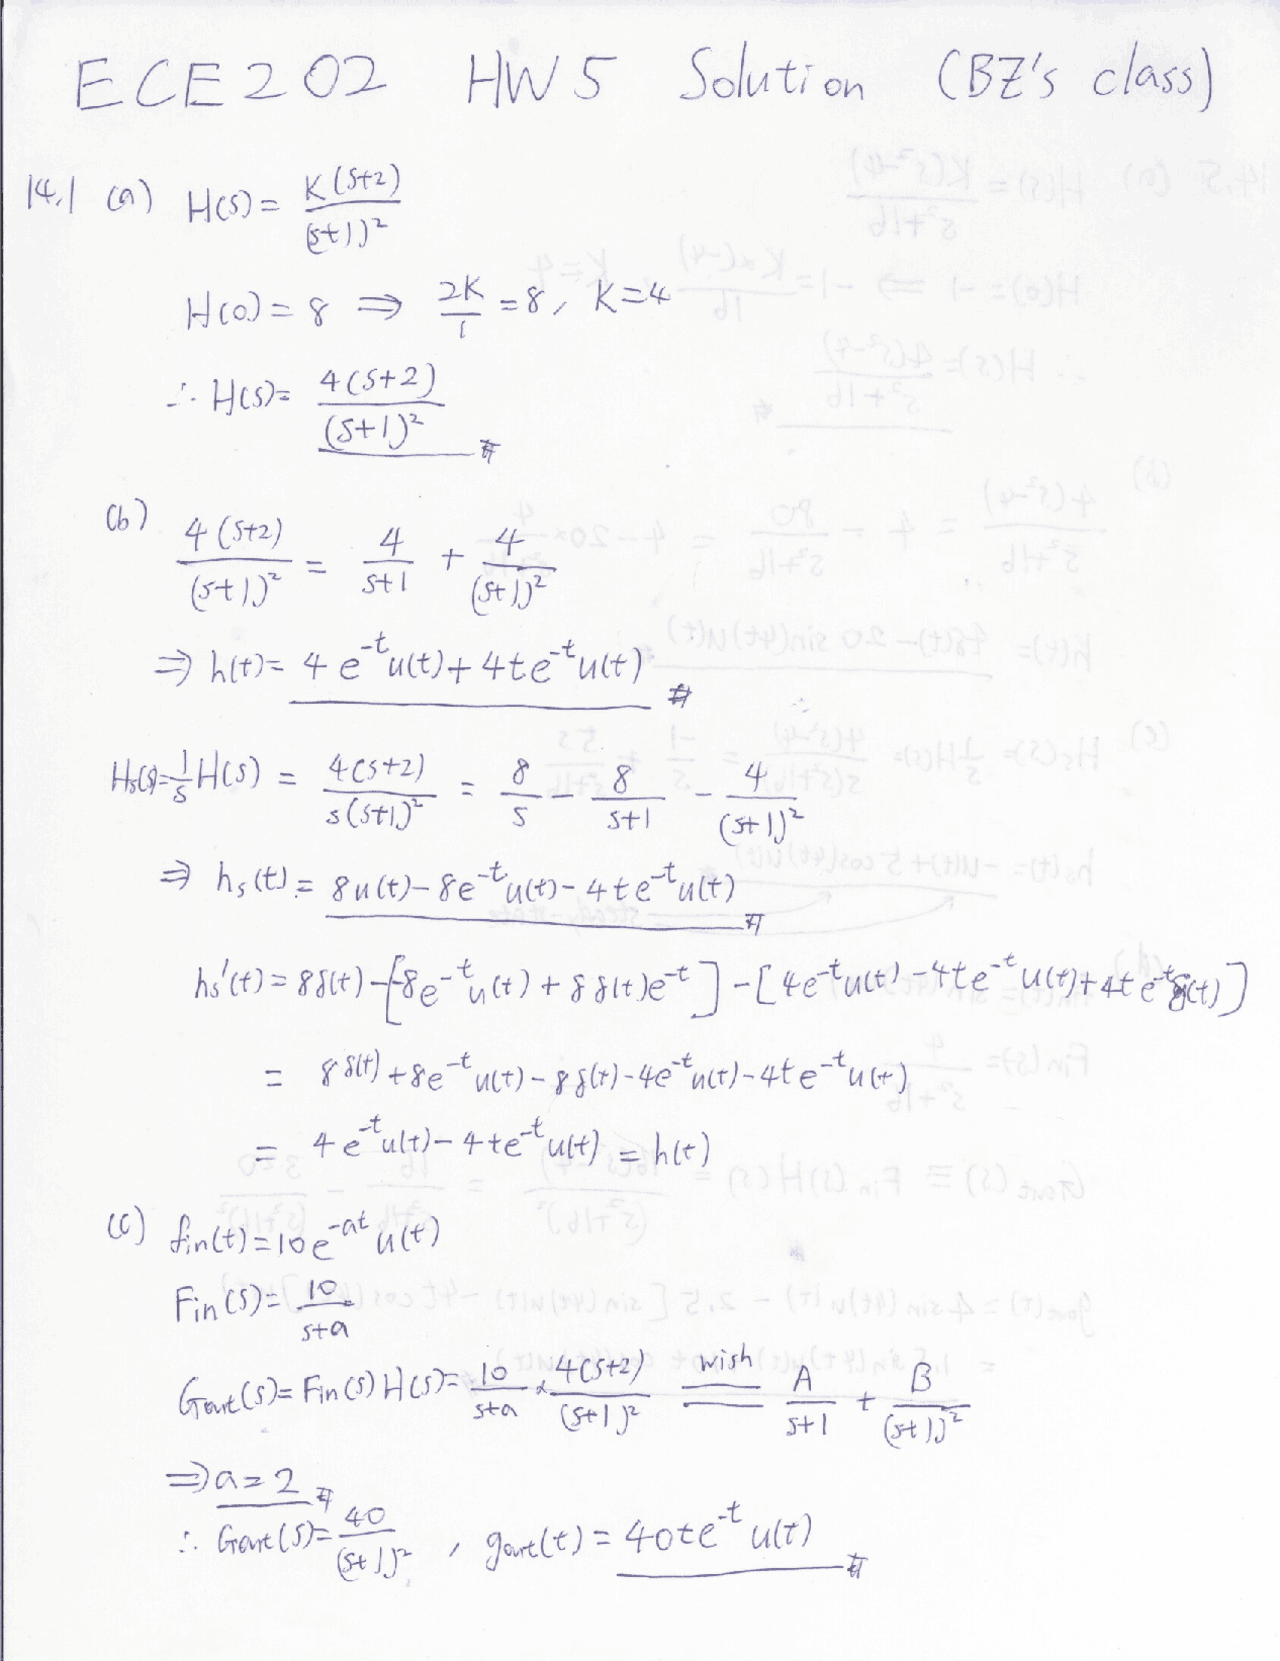 ECE202 HW5 Solution (BZ's class)
14.1 (a) H(s) = K(s+2) / (s+1)²
H(0) = 8 ⇒ 2K/1 = 8, K=4
∴ H(s) = 4(s+2) / (s+1)² #
(b) 4(s+2) / (s+1)² = 4/(s+1) + 4/(s+1)²
⇒ h(t) = 4e^{-t}u(t) + 4te^{-t}u(t) #
Hs(s) = 1/s H(s) = 4(s+2) / s(s+1)² = 8/s - 8/(s+1) - 4/(s+1)²
⇒ hs(t) = 8u(t) - 8e^{-t}u(t) - 4te^{-t}u(t) #
hs'(t) = 8δ(t) - [-8e^{-t}u(t) + 8δ(t)e^{-t}] - [4e^{-t}u(t) - 4te^{-t}u(t) + 4te^{-t}δ(t)]
= 8δ(t) + 8e^{-t}u(t) - 8δ(t) - 4e^{-t}u(t) - 4te^{-t}u(t)
= 4e^{-t}u(t) - 4te^{-t}u(t) = h(t)
(c) fin(t) = 10e^{-at}u(t)
Fin(s) = 10/(s+a)
Gout(s) = Fin(s)H(s) = 10/(s+a) × 4(s+2)/(s+1)² wish A/(s+1) + B/(s+1)²
⇒ a=2 #
∴ Gout(s) = 40/(s+1)², gout(t) = 40te^{-t}u(t) #